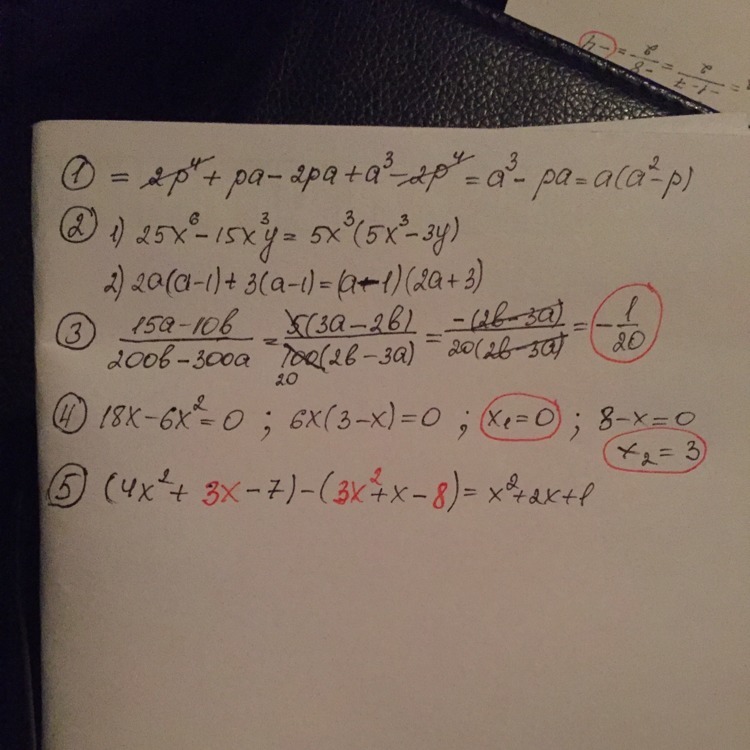 -1-7/2 = -8/2 = -4
① = 2p⁴ + pa - 2pa + a³ - 2p⁴ = a³ - pa = a(a² - p)
② 1) 25x⁶ - 15x³y = 5x³(5x³ - 3y)
2) 2a(a-1) + 3(a-1) = (a-1)(2a+3)
③ 15a-10b/200b-300a = 5(3a-2b)/100(2b-3a) = -(2b-3a)/20(2b-3a) = -1/20
20
④ 18x - 6x² = 0 ; 6x(3-x) = 0 ; x₁ = 0 ; 8-x = 0
x₂ = 3
⑤ (4x² + 3x - 7) - (3x² + x - 8) = x² + 2x + 1